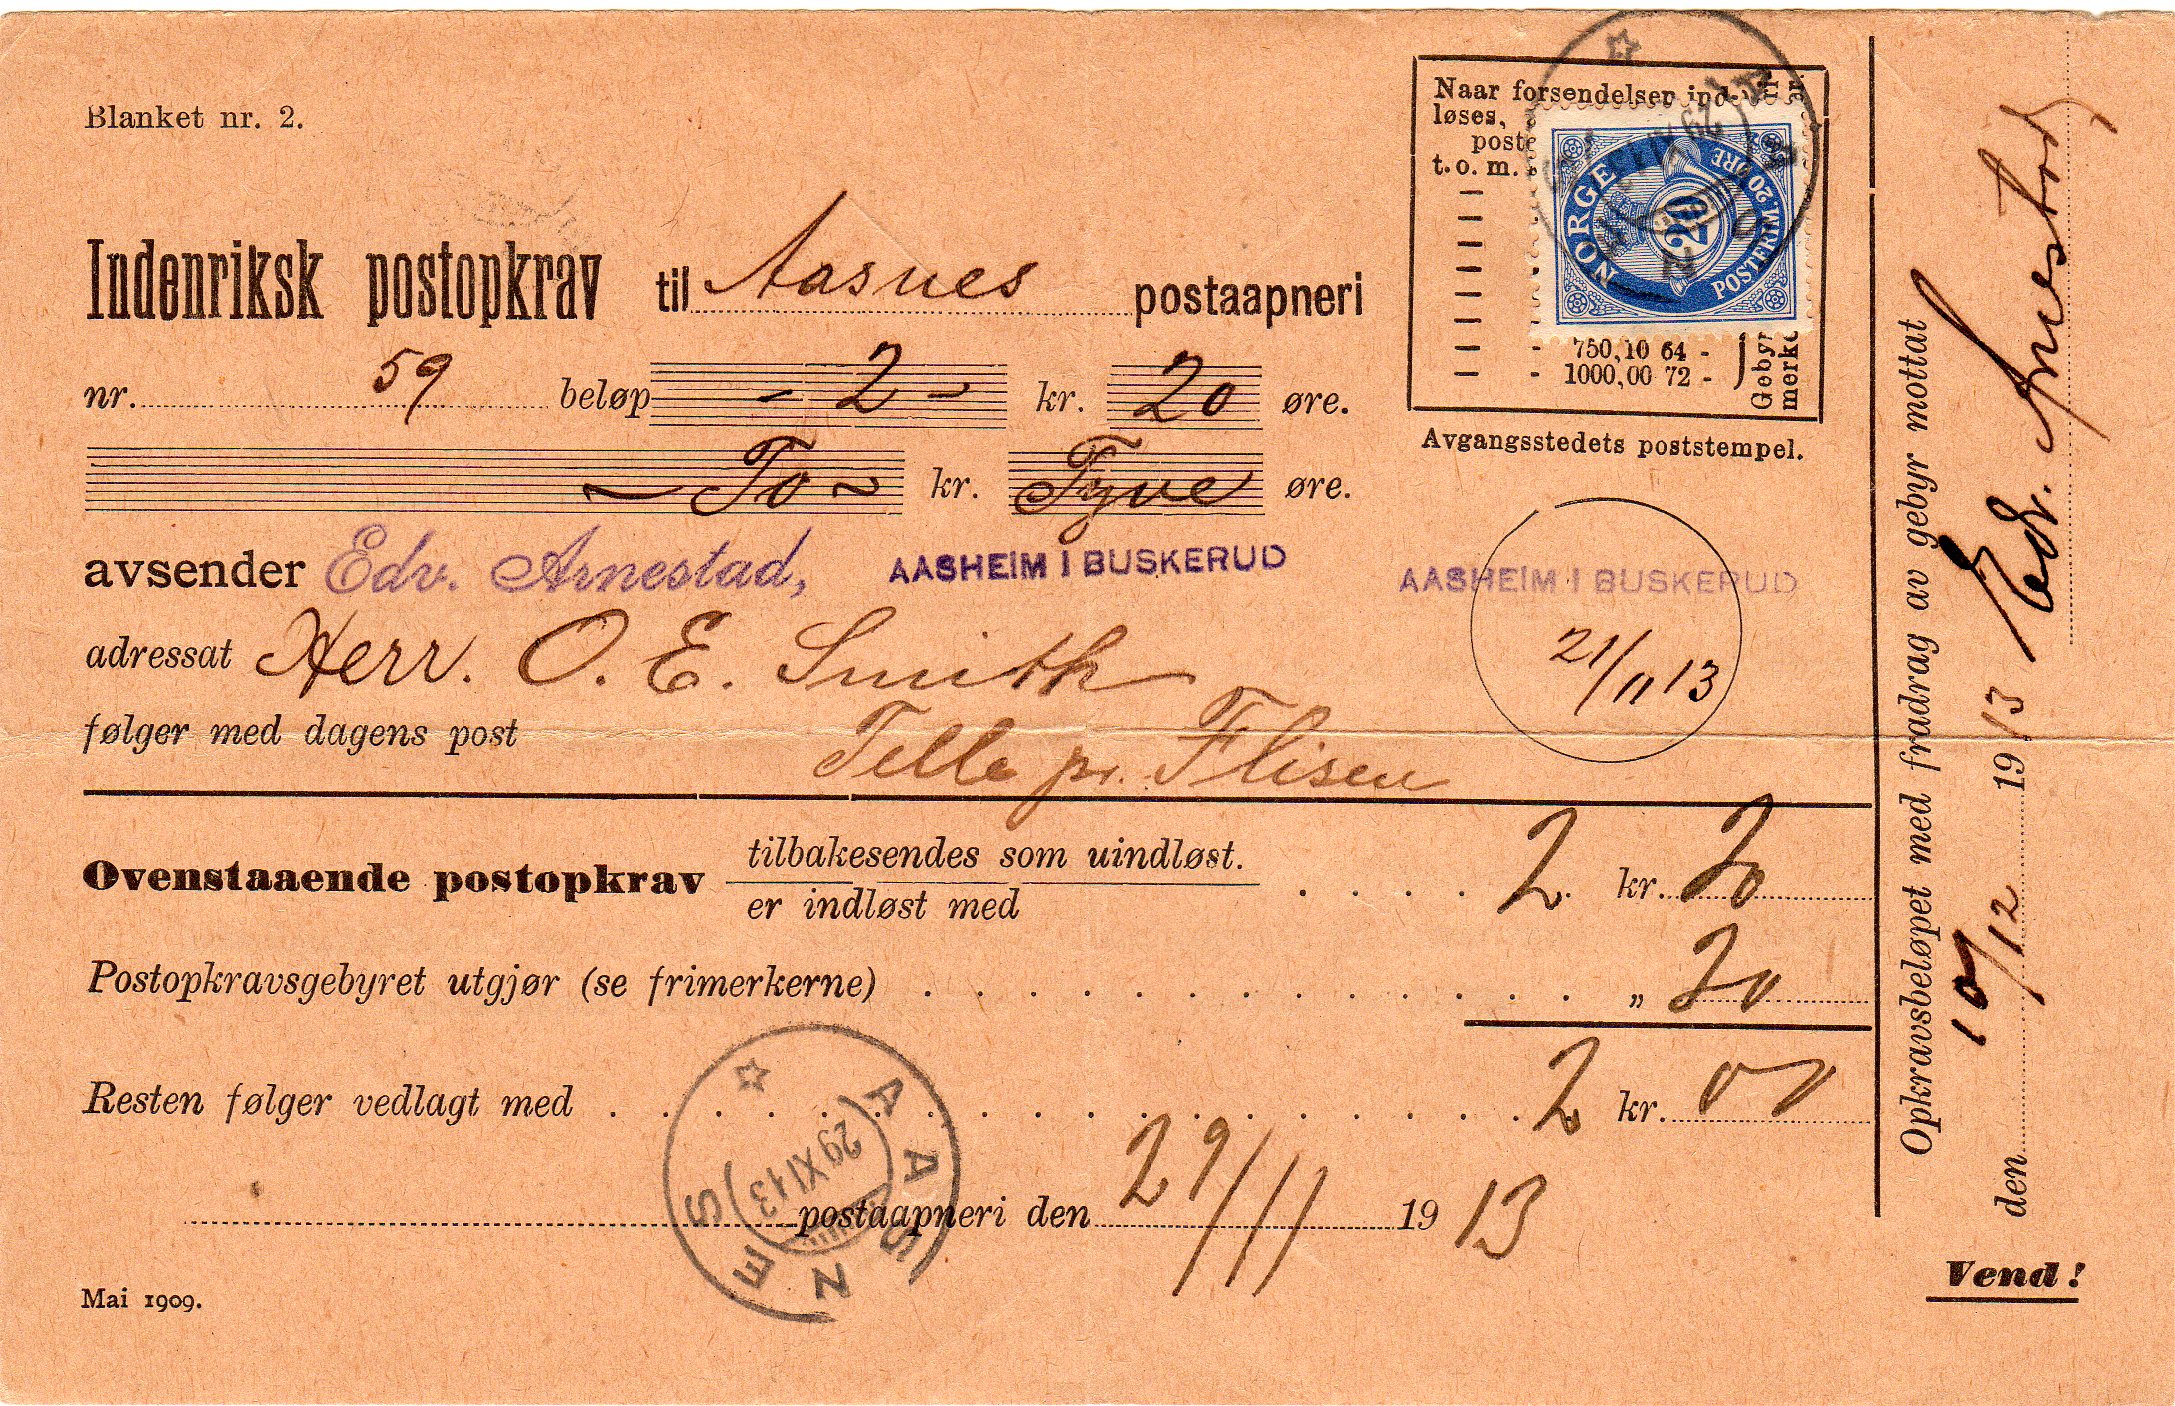 Blanket nr. 2.
Indenriksk postopkrav til Aasnes postaapneri
nr. 59 beløp - 2 - kr. 20 øre.
- To - kr. Tyve øre.
avsender Edv. Arnestad, AASHEIM I BUSKERUD
adressat Herr. O. E. Smith
følger med dagens post
Telle pr. Flisen
Naar forsendelser
løses,
poste
t. o. m.
750,10 64 -
1000,00 72 -
Gebyr
merke
NORGE
20
POSTFRIM. 20 ØRE
Avgangsstedets poststempel.
AASHEIM I BUSKERUD
21/11 13
Ovenstaaende postopkrav tilbakesendes som uindløst.
er indløst med . . . . 2 kr. 20
Postopkravsgebyret utgjør (se frimerkerne) . . . . . . . . . . . . . „ 20
Resten følger vedlagt med . . . . . . . . . . . . . . . . . . 2 kr. 00
AASNES
29 XI 13
postaapneri den 29/11 19 13
Mai 1909.
Opkravsbeløpet med fradrag av gebyr mottat
den 10/12 1913 Edv. Arnestad
Vend!